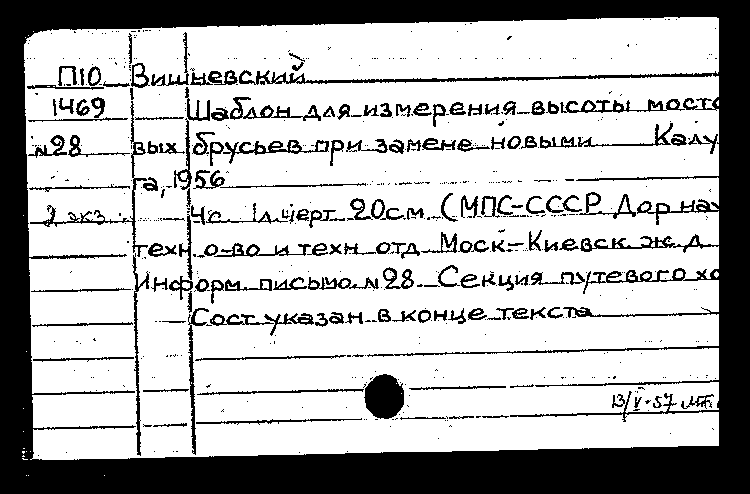 П10 Вишневский
1469 Шаблон для измерения высоты мосто
№28 вых брусьев при замене новыми Калу
га, 1956
2 экз. 4с 1л.черт 20см (МПС-СССР Дор науч
техн о-во и техн отд Моск-Киевск ж.д
Информ. письмо №28 Секция путевого хо
Сост указан в конце текста
13/V-57